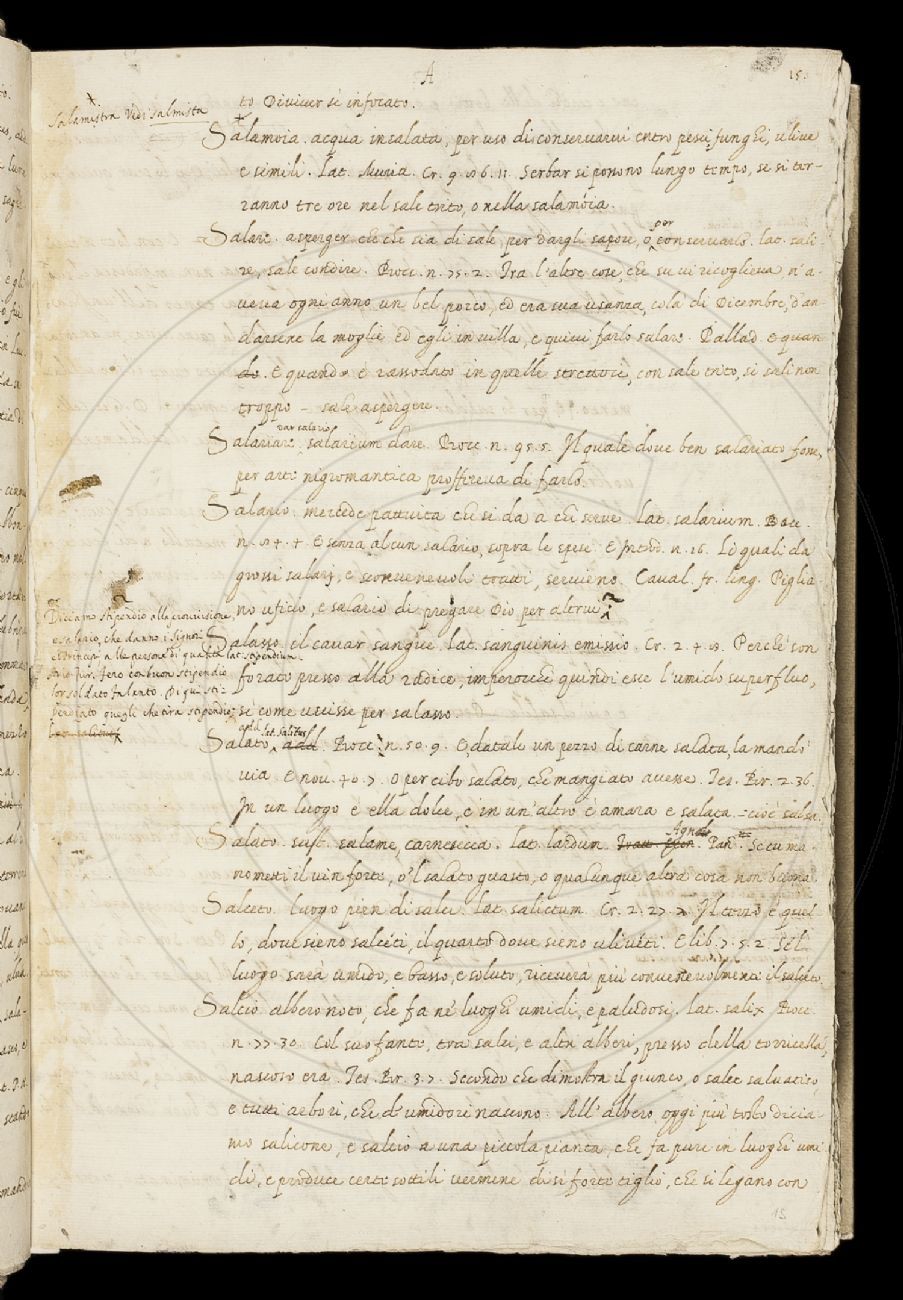 A
15.
Salamistra Vedi Salmista
to Diviver sì infocato.
Salamoia. acqua insalata, per uso di conservarvi entro pesci, funghi, ulive
e simili. Lat. Muria. Cr. 9. 86. 11. Serbar si possono lungo tempo, se si ter-
ranno tre ore nel sale trito, o nella salamóia.
Salare. asperger che che sia di sale, per dargli sapore, o per conservarlo. lat. sali
re, sale condire. Bocc. n. 75. 2. Tra l'altre cose, che su vi ricoglieva n'a-
veva ogni anno un bel porco, ed era sua usanza, colà di Dicembre, d'an
darsene la moglie ed egli in villa, e quivi farlo salare. Pallad. E quan
do. E quando è rassodato in quelle strettoie, con sale trito, si sali non
troppo - sale aspergere.
Salariare. dar salario, salarium dare. Bocc. n. 95. 5. Il quale dove ben salariato fosse,
per arte nigromantica proffereva di farlo.
Salario. mercede pattuita che si da a chi serve. Lat. salarium. Bocc.
n. 4. E senza alcun salario, sopra le spese. E Introd. n. 16. Li quali da
grossi salarj, e sconvenevoli tratti, servieno. Caval. fr. ling. Piglia-
no uficio, e salario di pregare Dio per altrui
Diciamo stipendio alla provvisione,
e salario, che danno i Signori
e Principi alle persone di qualità lat. stipendium
con buon stipendio
soldato Di qui sti-
pendiato quegli che tira stipendio
Salasso. il cavar sangue. lat. sanguinis emissio. Cr. 2. 4. Perchè son
forato presso alla radice, imperocchè quindi esce l'umido superfluo,
si come uscisse per salasso.
Salato, add. lat. salitus add. Bocc. n. 50. 9. E datale un pezzo di carne salata, la mandò
via. E nov. 40. 7. O per cibo salato, che mangiato avesse. Tes. Br. 2. 36.
In un luogo è ella dolce, e in un'altro è amara e salata - cioè salsa.
Salato. sust. salame, carnesecca. lat. lardum. Agno Pan Se tu ma-
nometti il vin forte, o'l salato guasto, o qualunque altra cosa non buona
Salceto. luogo pien di salci. lat. salictum. Cr. 2. 27. 2. Il terzo è quel-
lo, dove sieno salceti, il quarto dove sieno uliveti. E lib. 7. 5. 2. Se'l
luogo sarà umido, e basso, e soluto, riceverà più convenevolmente il salceto.
Salcio. albero noto, che fa ne' luoghi umidi, e paludosi. Lat. salix. Bocc.
n. 77. 30. Col suo fante, tra salci, e altri alberi, presso della torricella,
nascoso era. Tes. Br. 3. 7. Secondo che dimostra il giunco, o salce salvatico,
e tutti arbori, che d'umidori nascono. All' albero oggi più tosto dicia-
mo salicone, e salcio a una piccola pianta, che fa pure in luoghi umi
di, e produce certe sottili vermene di sì forte tiglio, che si legano con
15